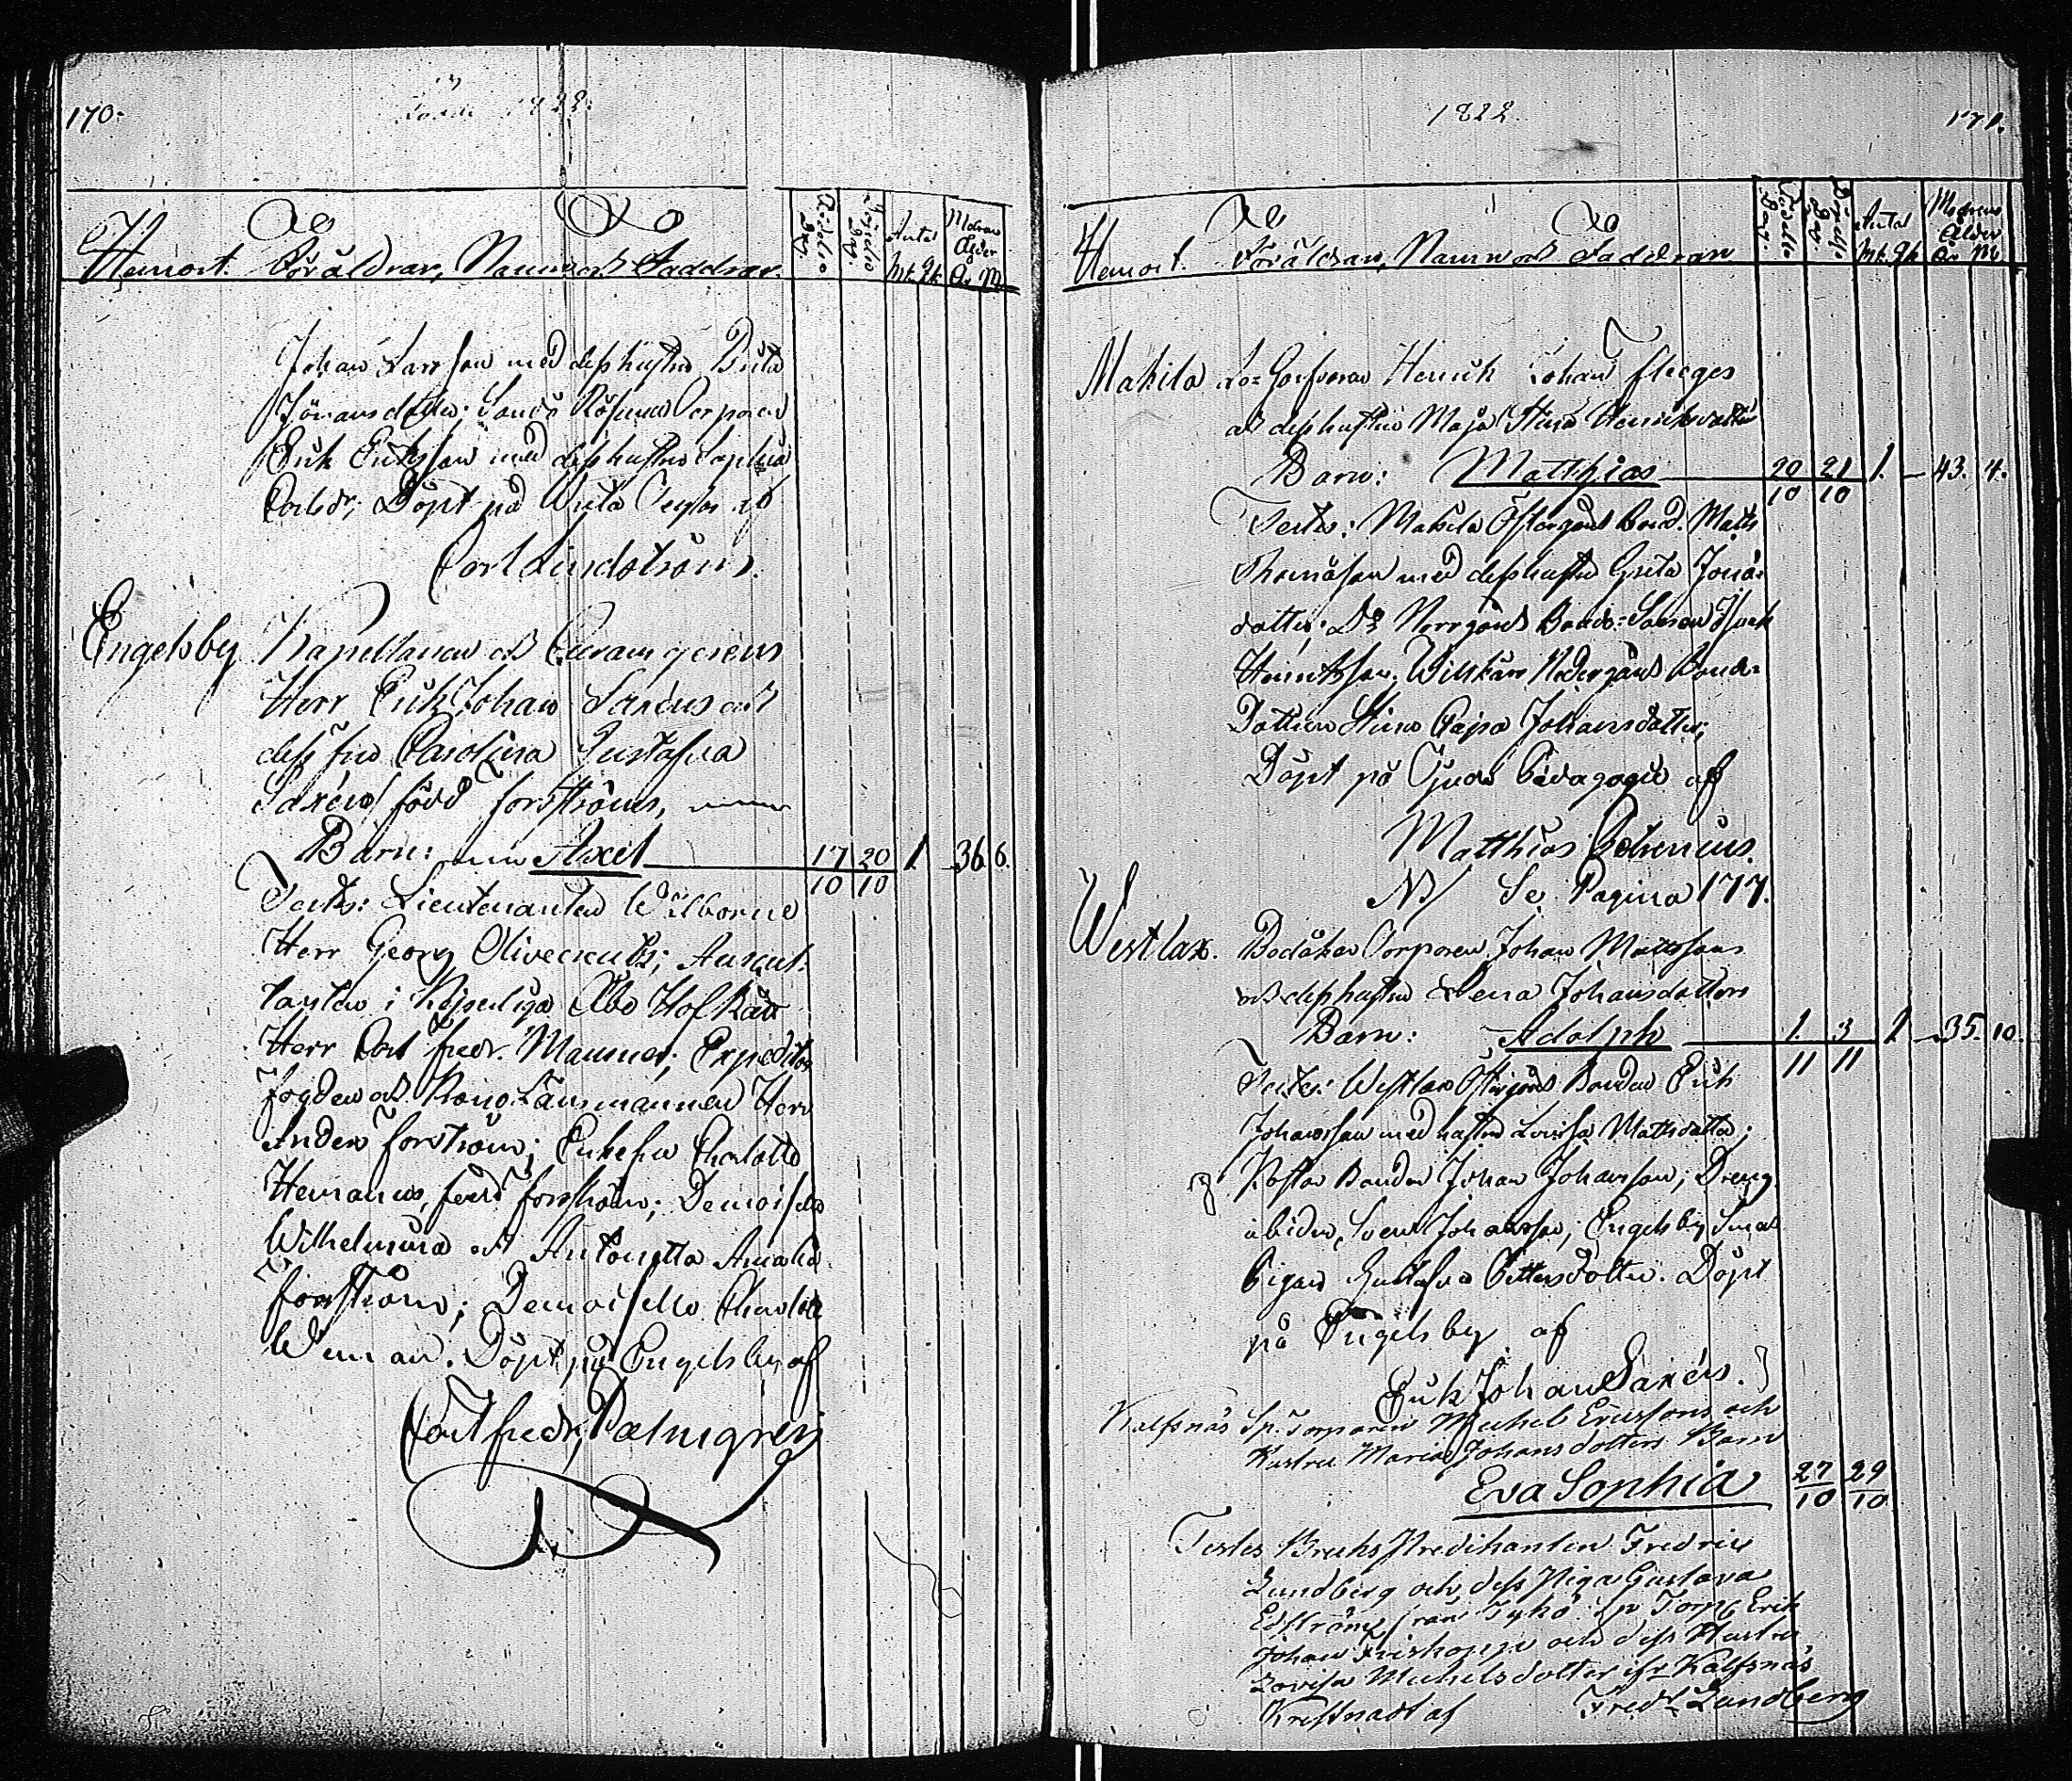 170.
Födde 1822.
Hemort. Föräldrar, Namn och Faddrar.
Födelse Dag. Döpelse Dag. Antal Mk. Qk. Modrens Ålder År M.
Johan Larsson med dess hustru Brita
Göransdotter; Sandö Torparen
Erik Ersson med dess hustru Sophia
Carlsdr; Döpt på Wreta af
Carl Lindström.
Engelsby Kapellanen och
Herr Erik Johan Saxéns och
dess fru Carolina Gustafva
Saxén, född Forsströms,
Barn: Axel 17/10 20/10 1. 36. 6.
Testes: Lieutenanten Wälborne
Herr Georg Olivecreutz; Auscul-
tanten i Kejserliga Åbo HofRätt
Herr Carl Fredr. Mausner; Expeditions
Fogden och Krono Länsmannen Herr
Anders Forsström; Enkefru Charlotta
Hemanus, född Forsström; Demoiselle
Wilhelmina och Antonetta Amalia
Forsström; Demoiselle Charlotte
Weman. Döpt på Engelsby af
Carl Fredr. Palmgren
1822.
171.
Hemort. Föräldrar, Namn och Faddrar
Födelse Dag. Döpelse Dag. Antal Mk. Qk. Modrens Ålder År M.
Makila Henrik Johan Fleeges
och dess hustru Maja Stina Henriksdotter
Barn: Matthias 20/10 21/10 1. 43. 4.
Testes: Makila Östergård Bond. Matts
Thomasson med dess hustru Greta Jona-
dotter. D:o Norrgård Bonde-Sonen Isak
Henriksson, Wilskärr Nedergård Bonde-
Dottren Stina Cajsa Johansdotter;
Döpt på Ojnas Pædagogie af
Matthias
NB/ Se Pagina 177.
Westlax. Bodåker Torparen Johan Mattssons
och dess hustru Lena Johansdotters
Barn: Adolph 1./11 3/11 1. 35. 10.
Testes: Westlax Östergård Bonden Erik
Johansson med hustru Lovisa Mattsdotter;
Bonden Johan Johansson; Dreng
Sven Johansson; Engelsby Smeds
Pigan Gustafva Pettersdotter. Döpt
på Engelsby af
Erik Johan Saxén.
Kalfsnäs Sp. Torparen Michel Ericssons och
Hustru Maria Johansdotters Barn
Eva Sophia 27/10 29/10
Testes Bruks Predikanten Fredric
Lundberg och dess Piga Gustava
Edström från Tykö. Sp. Torp. Erik
Johan Friskopp och dess Hustru
Lovisa Michelsdotter ifr. Kalfsnäs
Kristnadt af Fredr. Lundberg